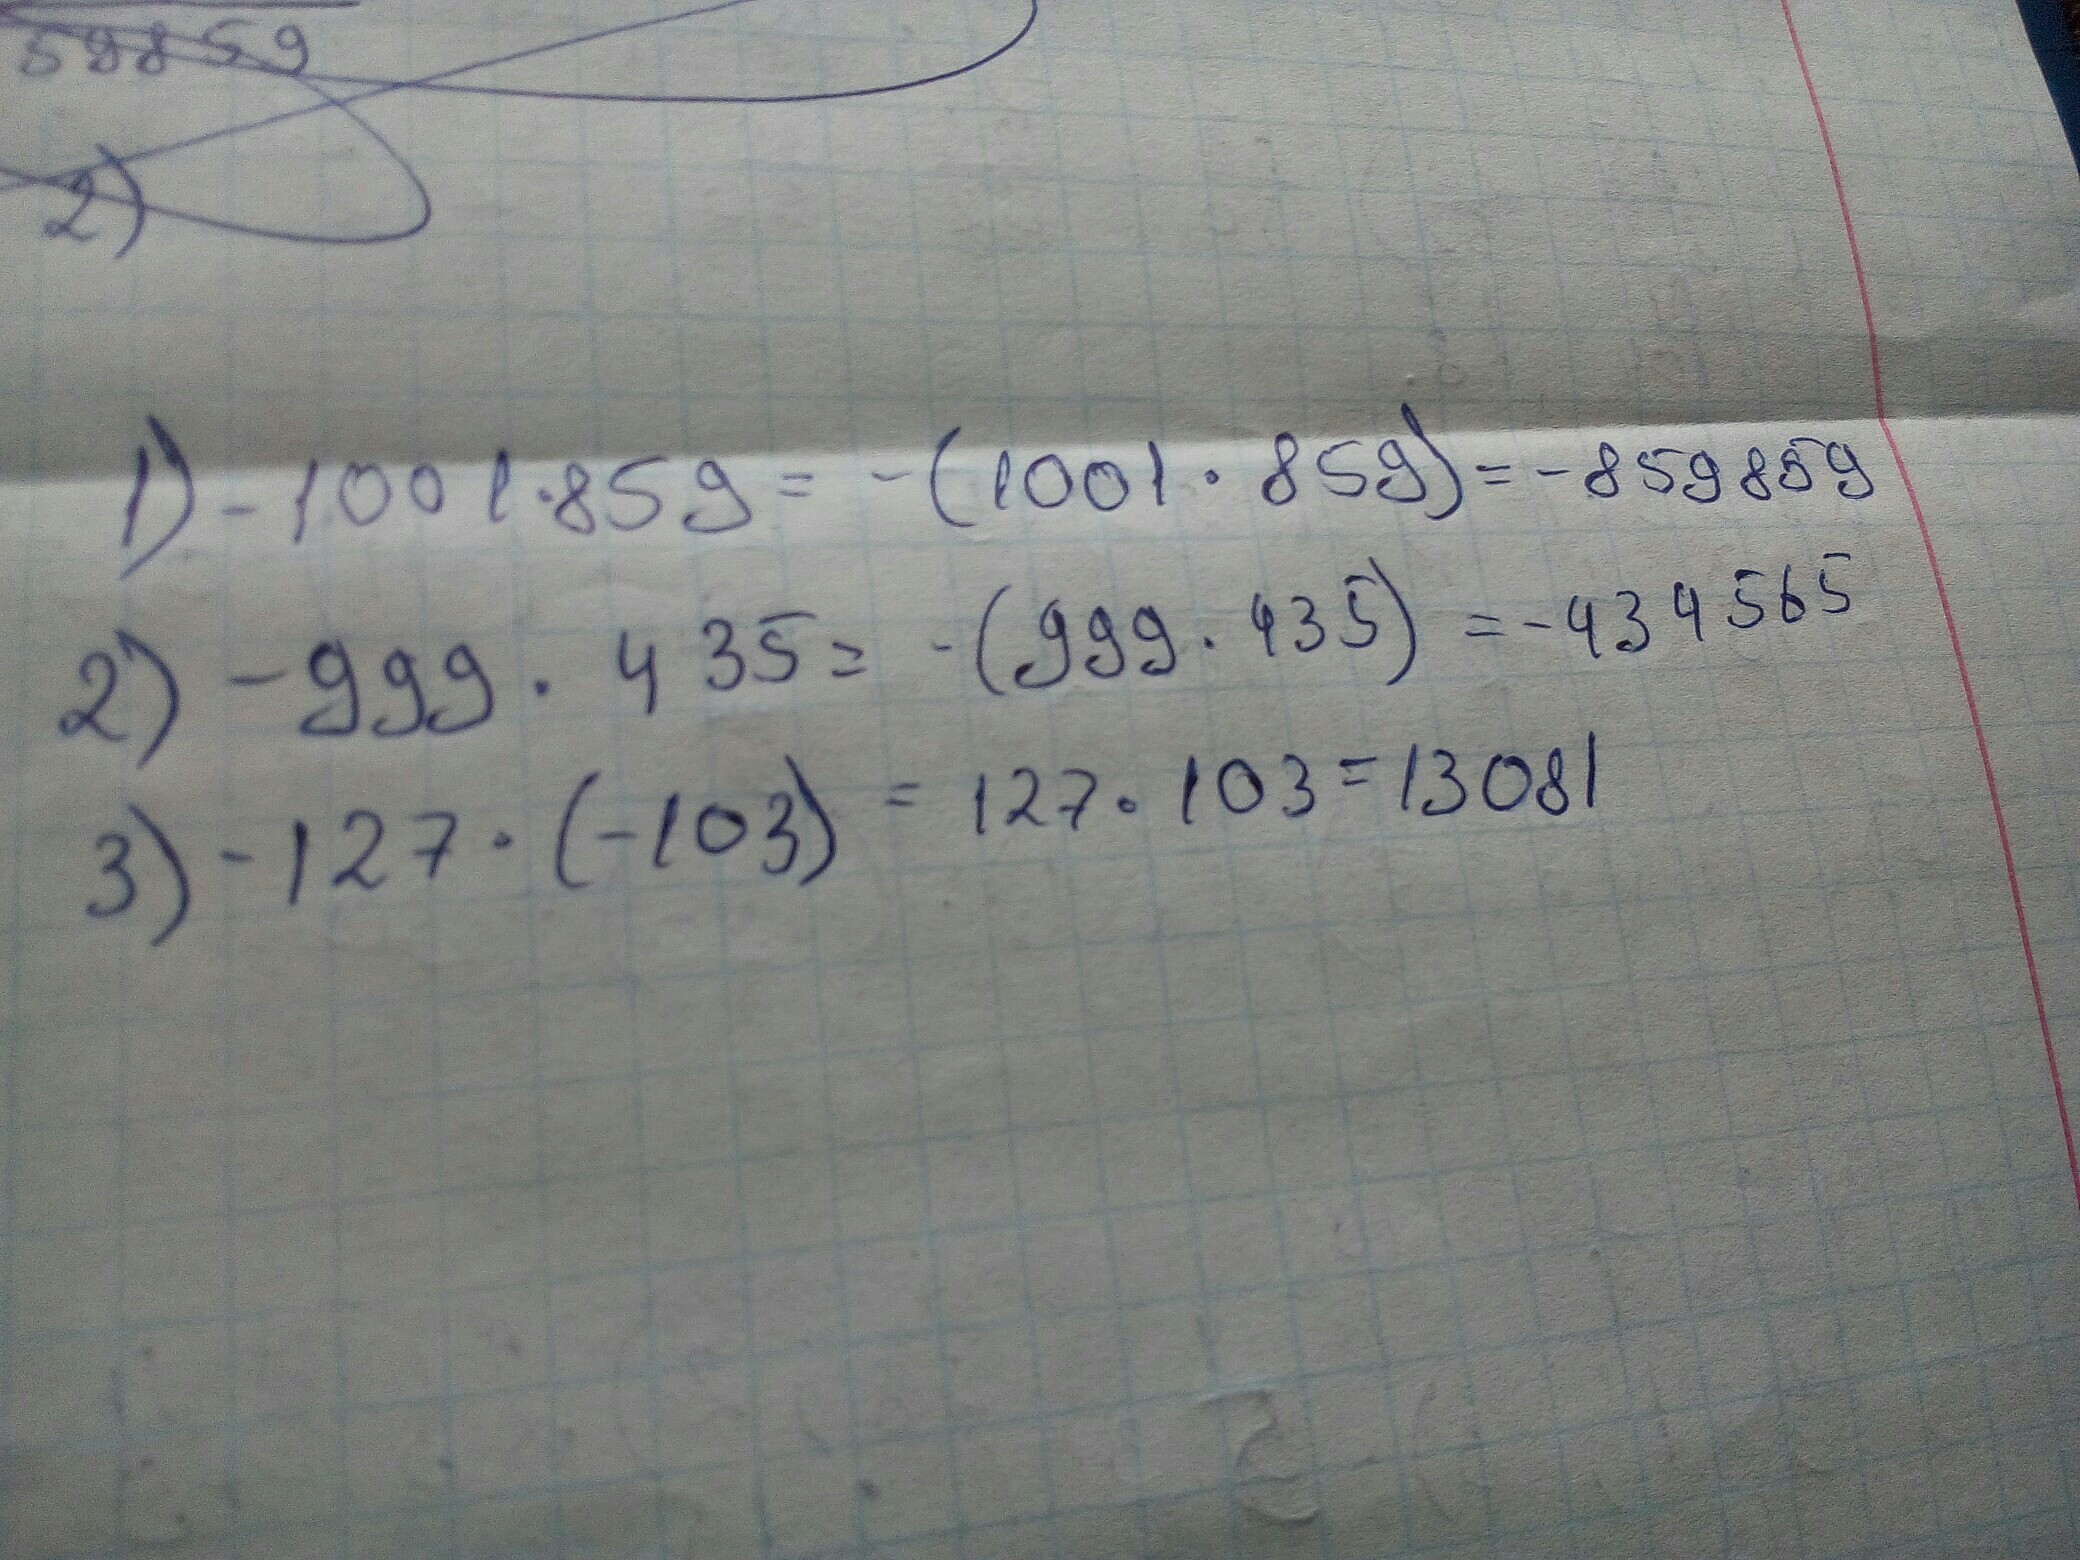 59859
2)
1) -1001·859 = -(1001·859) = -859859
2) -999·435 = -(999·435) = -434565
3) -127·(-103) = 127·103 = 13081